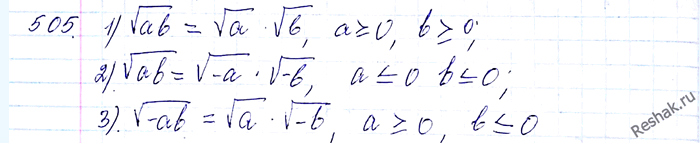 505. 1) √ab = √a · √b, a ≥ 0, b ≥ 0;
2). √ab = √-a · √-b, a ≤ 0 b ≤ 0;
3). √-ab = √a · √-b, a ≥ 0, b ≤ 0
Reshak.ru